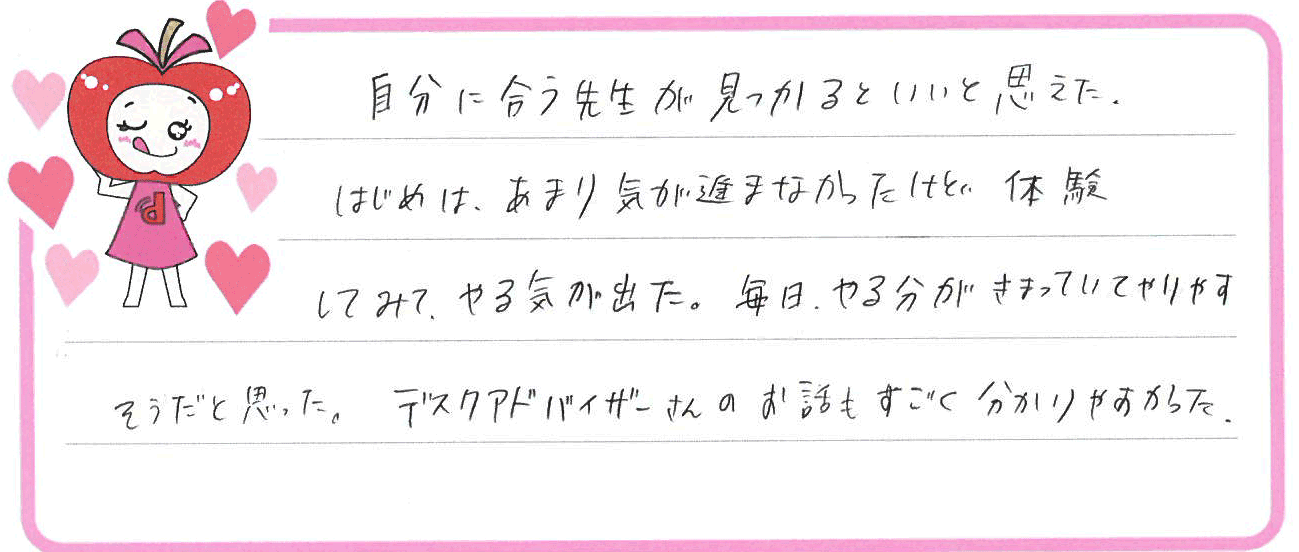 自分に合う先生が見つかるといいと思えた.
はじめは、あまり気が進まなかったけど、体験
してみて、やる気が出た。毎日、やる分がきまっていてやりやす
そうだと思った。デスクアドバイザーさんのお話もすごく分かりやすかった.
d